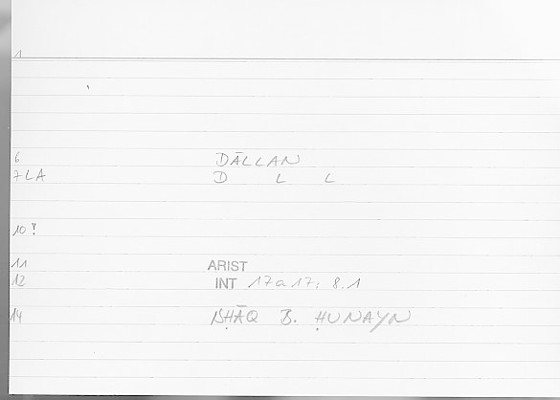 1
6 DĀLLAN
7LA D L L
10!
11 ARIST
12 INT 17a17: 8.1
14 ISḤĀQ B. ḤUNAYN